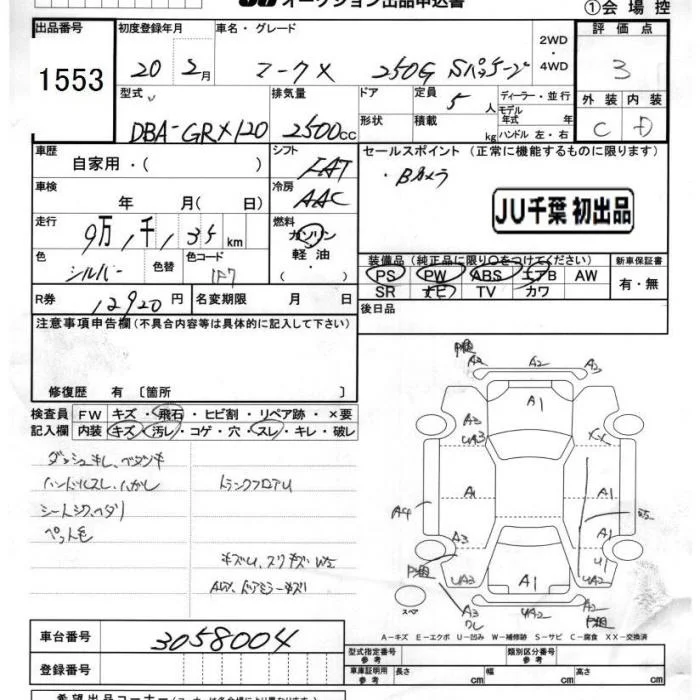 オークション出品申込書
①会場控
出品番号 初度登録年月 車名・グレード 2WD・4WD 評価点
1553 20 2月 マークX 250G Sパッケージ 3
型式 排気量 ドア 定員 5人 ディーラー・並行 外装 内装
DBA-GRX120 2500cc 形状 積載 kg モデル年式 年 ハンドル 左・右 C D
車歴 自家用・( ) シフト FAT セールスポイント (正常に機能するものに限ります)
・Bカメラ
車検 年 月( 日) 冷房 AAC
JU千葉 初出品
走行 9万, 千, 35 km 燃料 ガソリン 軽油 ・( )
装備品(純正品に限り○をつけてください) 新車保証書
PS PW ABS エアB AW 有・無
色 シルバー 色替 色コード 1F7
SR ナビ TV カワ
R券 12920円 名変期限 月 日 後日品
注意事項申告欄(不具合内容等は具体的に記入して下さい)
修復歴 有 〔箇所 〕
検査員 FW キズ・飛石・ヒビ割・リペア跡・×要
記入欄 内装 キズ・汚レ・コゲ・穴・スレ・キレ・破レ
ハンドルスレ、ハガレ トランクフロアU
ペット毛
A2 A2 A2
A1
A3 UA3 XX
A1 A1
A4
A3 A1 U1
UA2 A1 UA2
スペア A3 UA2 A2
A-キズ E-エクボ U-凹み W-補修跡 S-サビ C-腐食 XX-交換済
車台番号 3058004
型式指定番号 参考 類別区分番号 参考
登録番号 車庫証明用 参考 長さ cm 幅 cm 高さ cm
希望出品コーナー